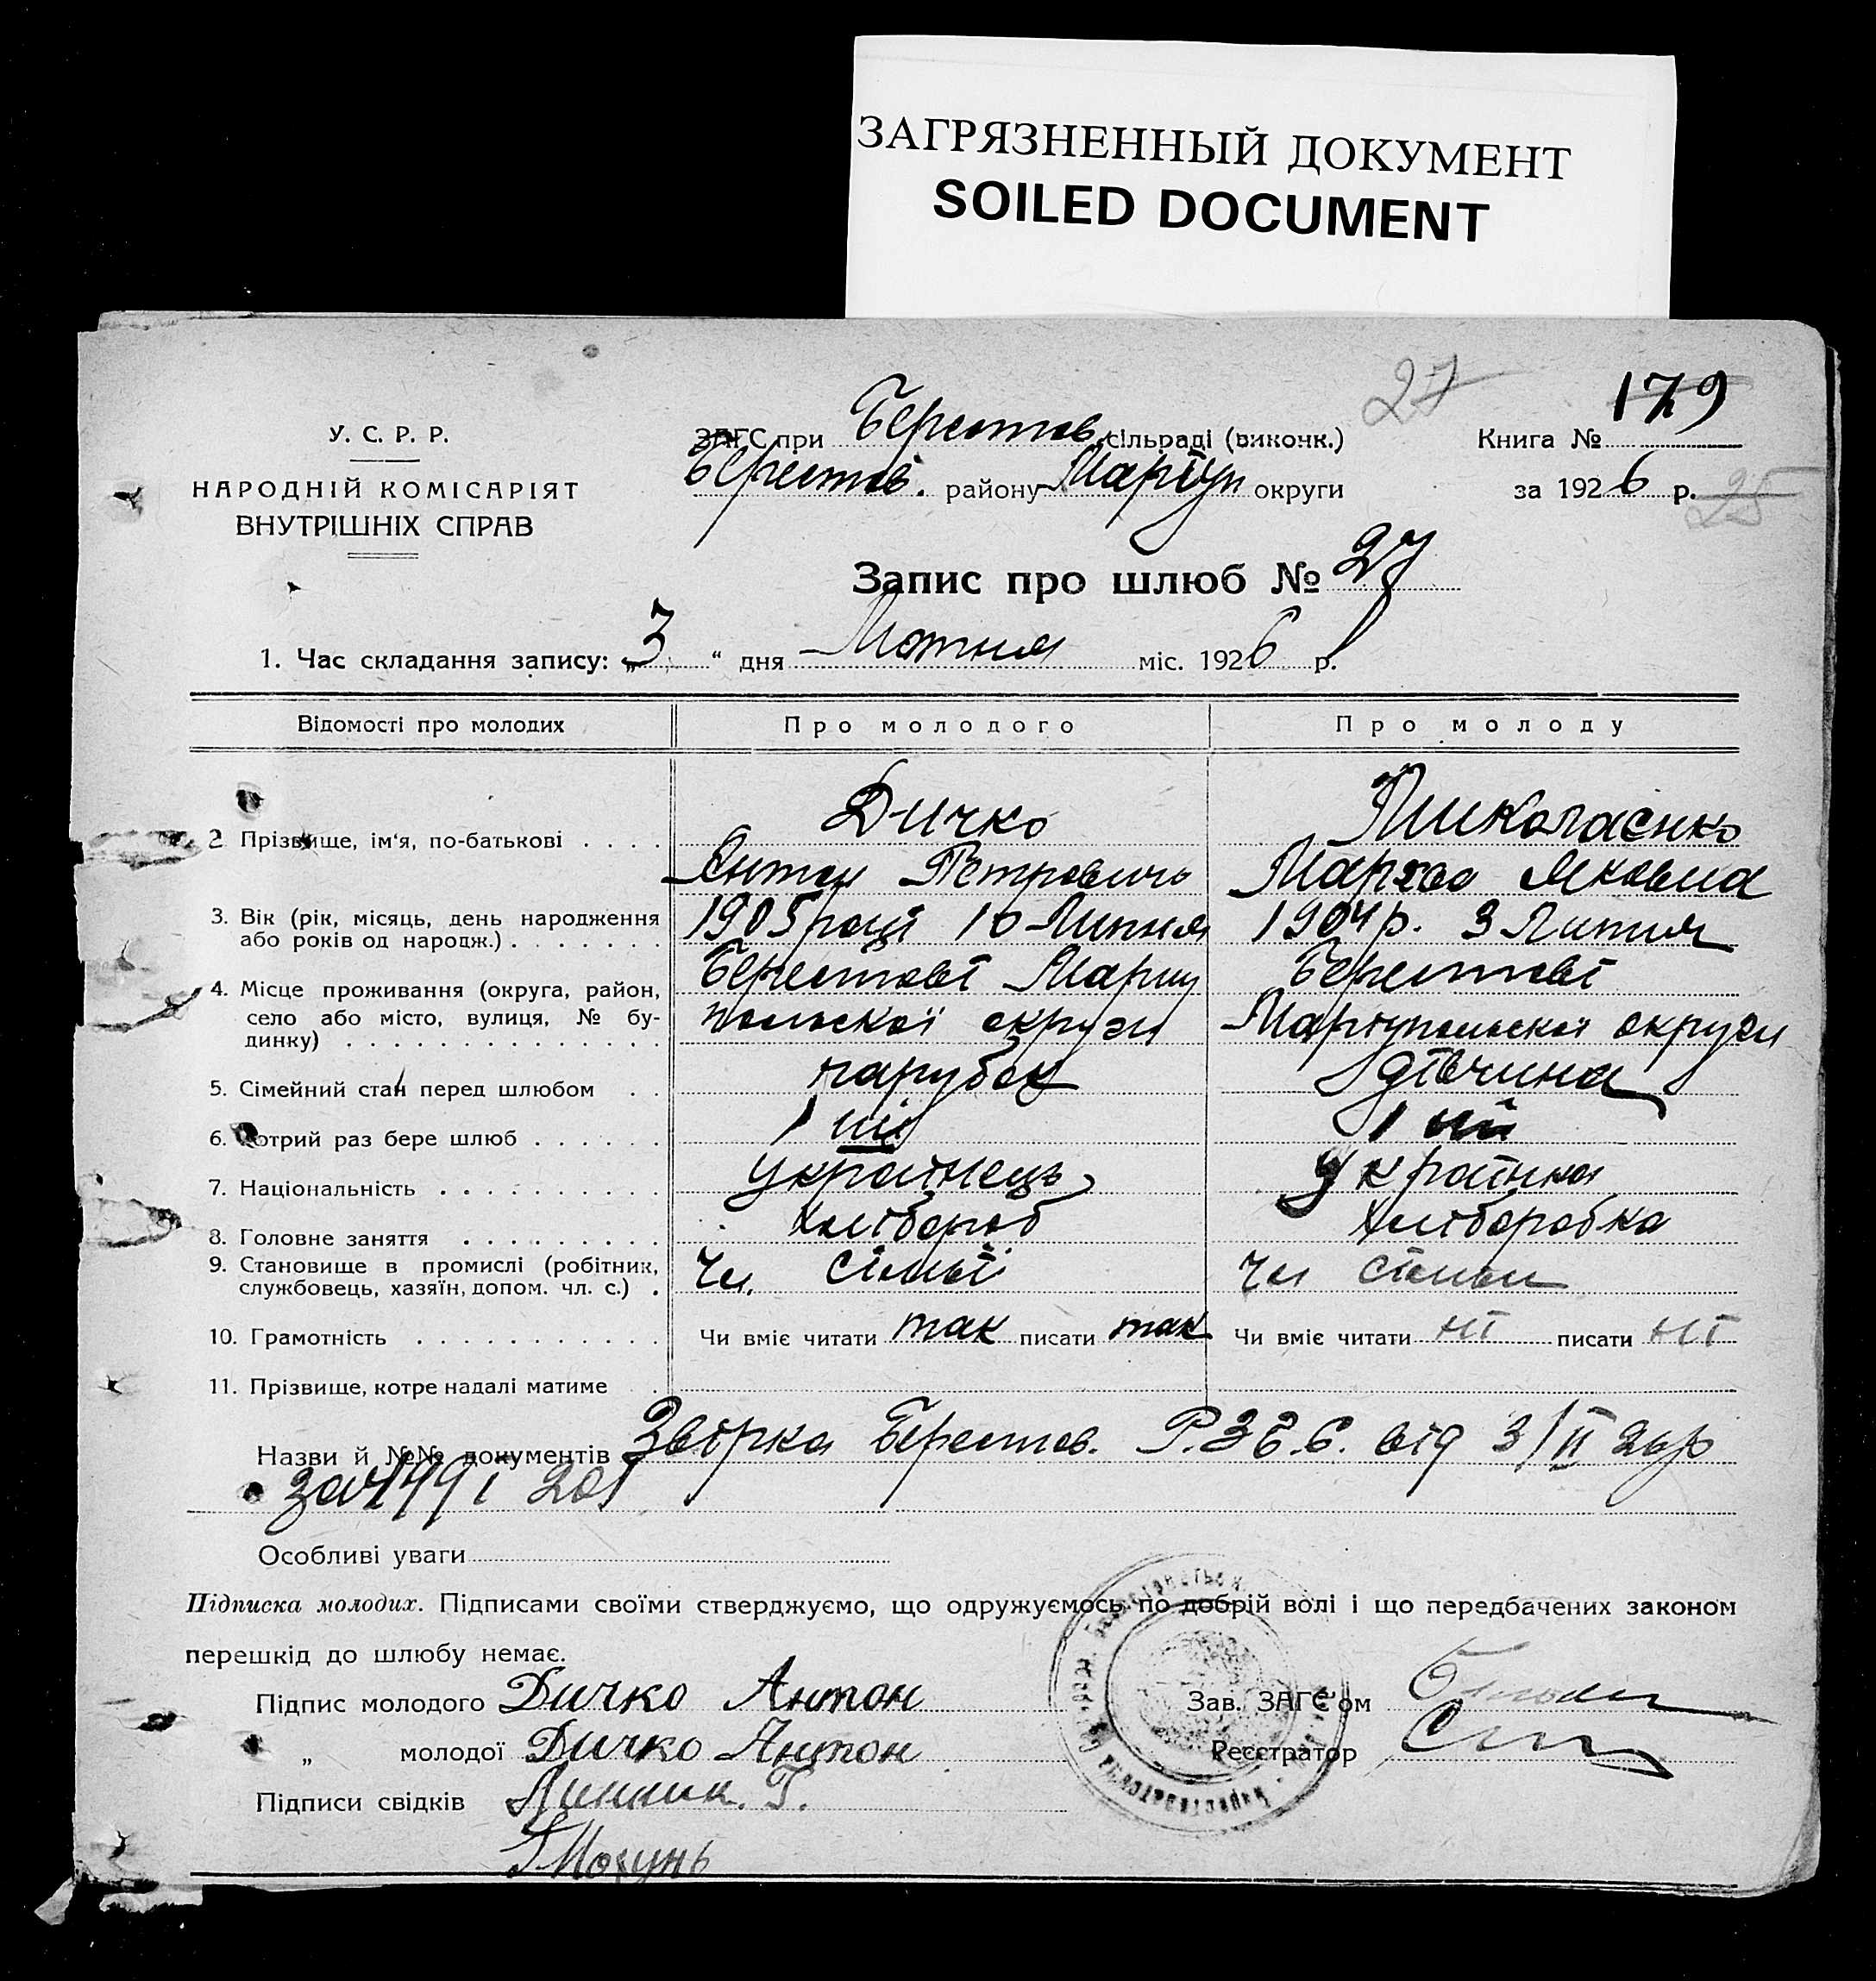 ЗАГРЯЗНЕННЫЙ ДОКУМЕНТ
SOILED DOCUMENT
27
179
У. С. Р. Р.
НАРОДНІЙ КОМІСАРІЯТ
ВНУТРІШНІХ СПРАВ
ЗАГС при Берестов. сільраді (виконк.)
Книга №
Берестов. району Маріуп округи
за 1926 р.
25
Запис про шлюб № 27
1. Час складання запису: „3“ дня Лютня міс. 1926 р.
Відомості про молодих Про молодого Про молоду
2. Прізвище, ім'я, по-батькові Дичко Миколаєнко
Антон Петрович Мархва Яковна
3. Вік (рік, місяць, день народження або років од народж.) 1905 році 10 Липня 1904 р. 3 Лютня
4. Місце проживання (округа, район, село або місто, вулиця, № будинку) Берестові Мариупольскої округи Берестові Маріупольскої округи
5. Сімейний стан перед шлюбом парубок дівчина
6. Котрий раз бере шлюб 1 ий 1 ий
7. Національність українець українка
8. Головне заняття хлібороб хлібо​робка
9. Становище в промислі (робітник, службовець, хазяїн, допом. чл. с.) Чл. сімьї Чл сімьи
10. Грамотність Чи вміє читати так писати так Чи вміє читати ні писати ні
11. Прізвище, котре надалі матиме
Назви й №№ документів Звірка Берестов. від 3/II 26 р
за 199 і 201
Особливі уваги
Підписка молодих. Підписами своїми стверджуємо, що одружуємось по добрій волі і що передбачених законом
перешкід до шлюбу немає.
Підпис молодого Дичко Антон
Зав. ЗАГС'ом
„ молодої Дичко Антон
Реєстратор
Підписи свідків